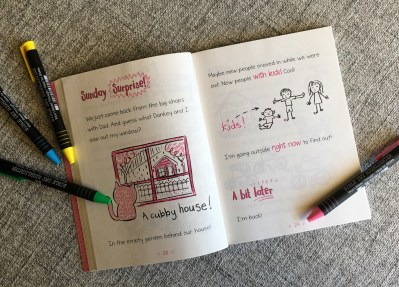 Sunday Surprise!
We just came back from the big shops
with Dad. And guess what Donkey and I
saw out my window?
A cubby house!
In the empty garden behind our house!
Maybe new people moved in while we were
out. New people with kids! Cool!
Kids!
I'm going outside right now to find out!
A bit later
I'm back!